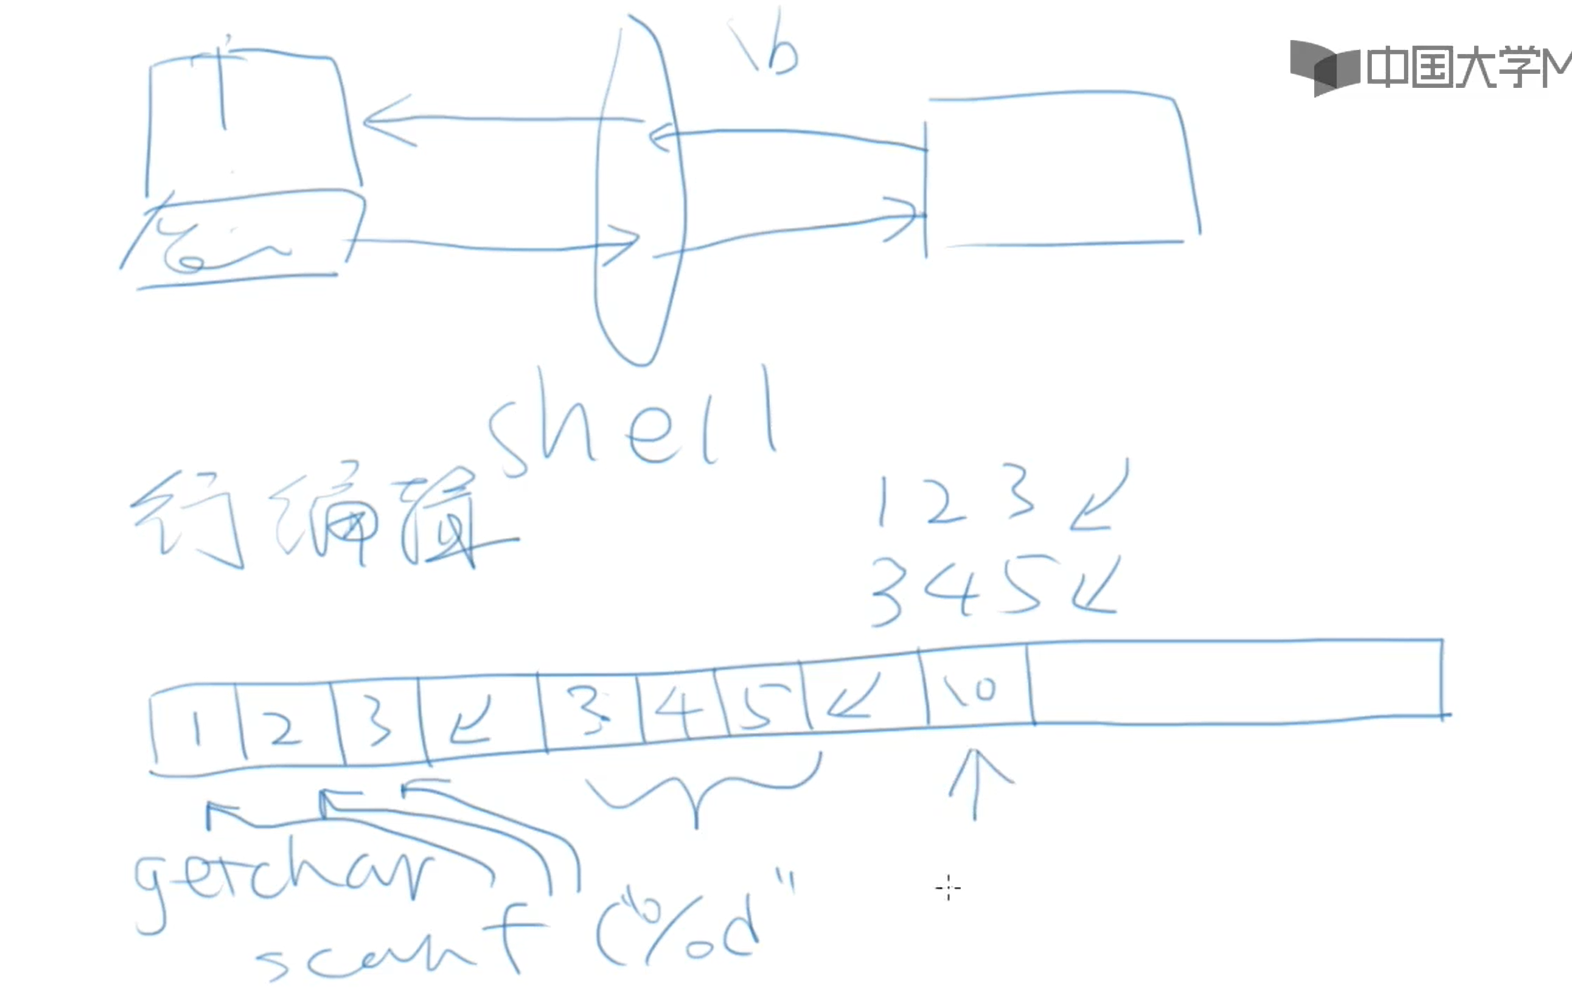 \b
中国大学M
shell
行编辑
1 2 3 ↙
3 4 5 ↙
1 2 3 ↙ 3 4 5 ↙ \0
getchar
scanf ("%d"